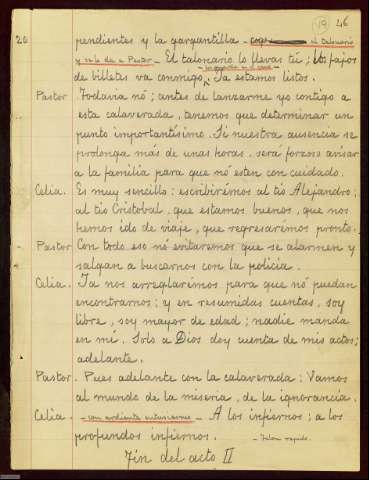 19 46
20 pendientes y la gargantilla - coge el talonario
y se lo da a Pastor - El talonario lo llevas tú; los fajos
de billetes va conmigo. Ya estamos listos.
Pastor Todavía nó; antes de lanzarme yo contigo a
esta calaverada, tenemos que determinar un
punto importantísimo. Si nuestra ausencia se
prolonga más de unas horas, será forzoso avisar
a la familia para que nó estén con cuidado.
Celia. Es muy sencillo: escribirémos al tio Alejandro;
al tio Cristobal, que estamos buenos, que nos
hemos ido de viaje, que regresarémos pronto.
Pastor Con todo eso nó evitaremos que se alarmen y
salgan a buscarnos con la policia.
Celia. Ya nos arreglarémos para que nó puedan
encontrarnos; y en resumidas cuentas, soy
libre, soy mayor de edad; nadie manda
en mí. Solo a Dios doy cuenta de mis actos;
adelante.
Pastor. Pues adelante con la calaverada: Vamos
al mundo de la miseria, de la ignorancia.
Celia - con ardiente entusiasmo - A los infiernos; a los
profundos infiernos. - Telon rapido.
Fin del acto II